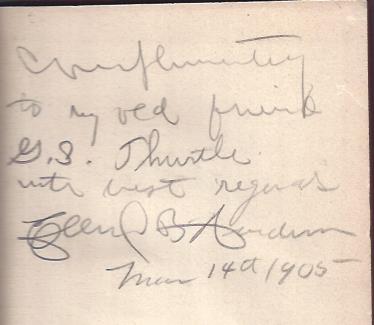 Complimentary
to my old friend
G. S. Thurtle
with best regards
B
Mar 14th 1905